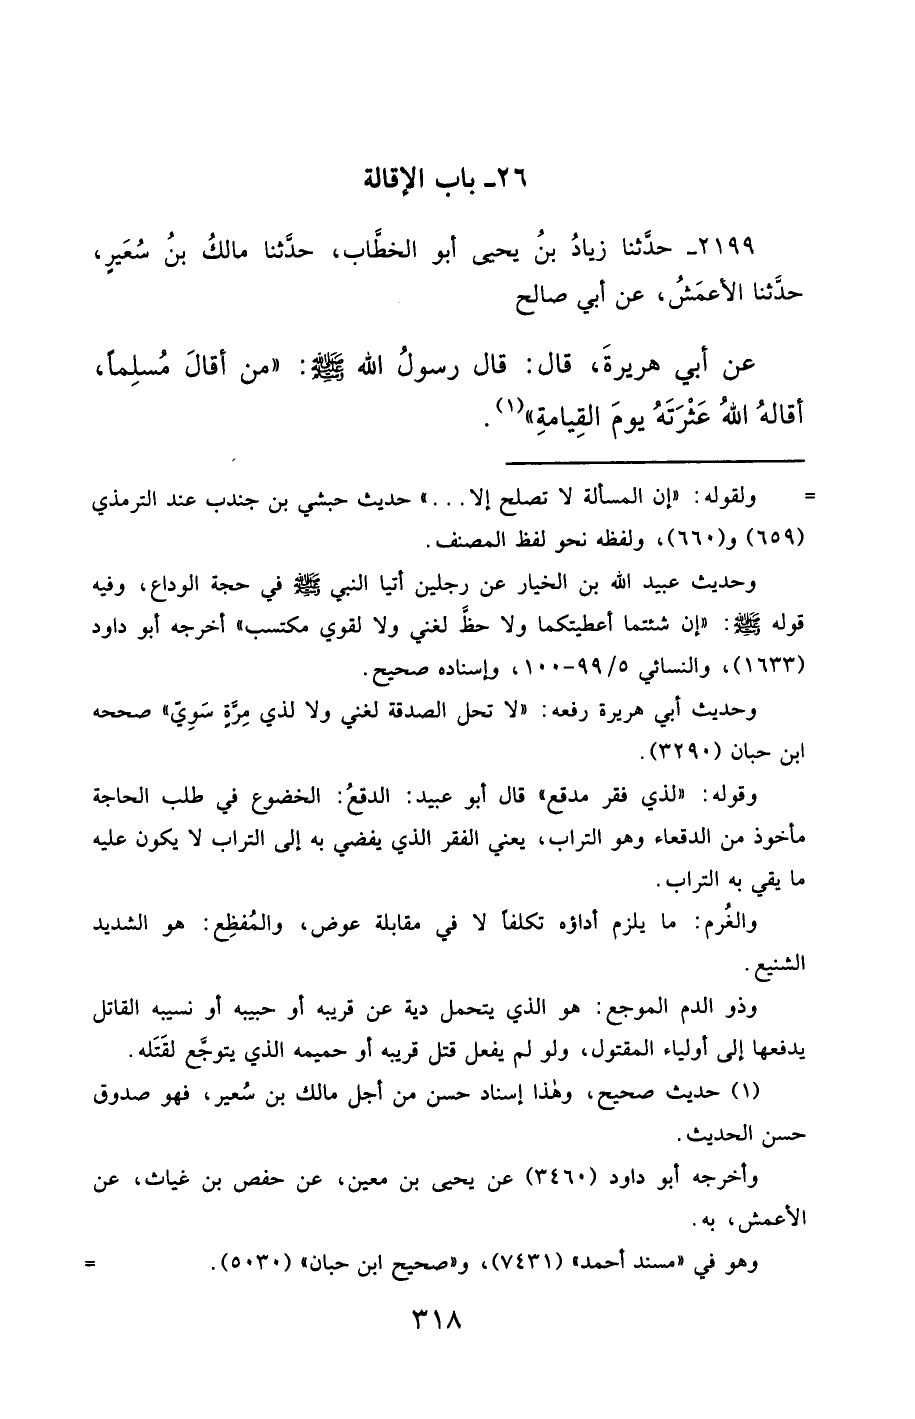 ٢٦ـ باب الإقالة
٢١٩٩ـ حدَّثنا زيادُ بنُ يحيى أبو الخطَّاب، حدَّثنا مالكُ بنُ سُعَيرٍ،
حدَّثنا الأعمَشُ، عن أبي صالح
عن أبي هريرةَ، قال: قال رسولُ الله ﷺ: «من أقالَ مُسلِماً،
أقالهُ اللهُ عَثْرَتَهُ يومَ القِيامةِ»(١).
= ولقوله: «إن المسألة لا تصلح إلا...» حديث حبشي بن جندب عند الترمذي
(٦٥٩) و(٦٦٠)، ولفظه نحو لفظ المصنف.
وحديث عبيد الله بن الخيار عن رجلين أتيا النبي ﷺ في حجة الوداع، وفيه
قوله ﷺ: «إن شئتما أعطيتكما ولا حظَّ لغني ولا لقوي مكتسب» أخرجه أبو داود
(١٦٣٣)، والنسائي ٥/٩٩-١٠٠، وإسناده صحيح.
وحديث أبي هريرة رفعه: «لا تحل الصدقة لغني ولا لذي مِرَّةٍ سَوِيّ» صححه
ابن حبان (٣٢٩٠).
وقوله: «لذي فقر مدقع» قال أبو عبيد: الدقعُ: الخضوع في طلب الحاجة
مأخوذ من الدقعاء وهو التراب، يعني الفقر الذي يفضي به إلى التراب لا يكون عليه
ما يقي به التراب.
والغُرم: ما يلزم أداؤه تكلفاً لا في مقابلة عوض، والمُفظِع: هو الشديد
الشنيع.
وذو الدم الموجع: هو الذي يتحمل دية عن قريبه أو حبيبه أو نسيبه القاتل
يدفعها إلى أولياء المقتول، ولو لم يفعل قتل قريبه أو حميمه الذي يتوجَّع لقَتَله.
(١) حديث صحيح، وهٰذا إسناد حسن من أجل مالك بن سُعير، فهو صدوق
حسن الحديث.
وأخرجه أبو داود (٣٤٦٠) عن يحيى بن معين، عن حفص بن غياث، عن
الأعمش، به.
وهو في «مسند أحمد» (٧٤٣١)، و«صحيح ابن حبان» (٥٠٣٠). =
٣١٨